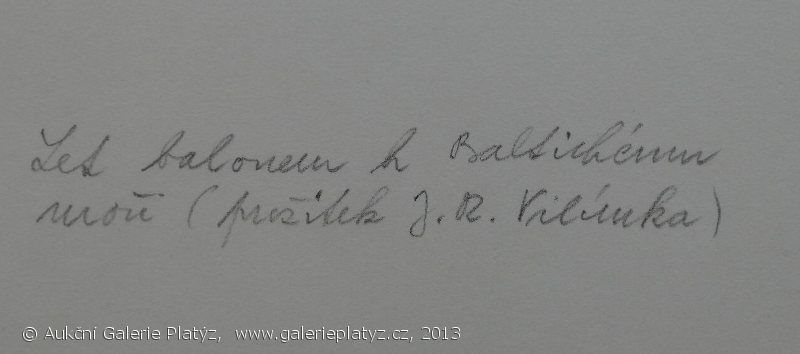 Let balonem k Baltickému
moři (prožitek J. R. Vilímka)
© Aukční Galerie Platýz, www.galerieplatyz.cz, 2013